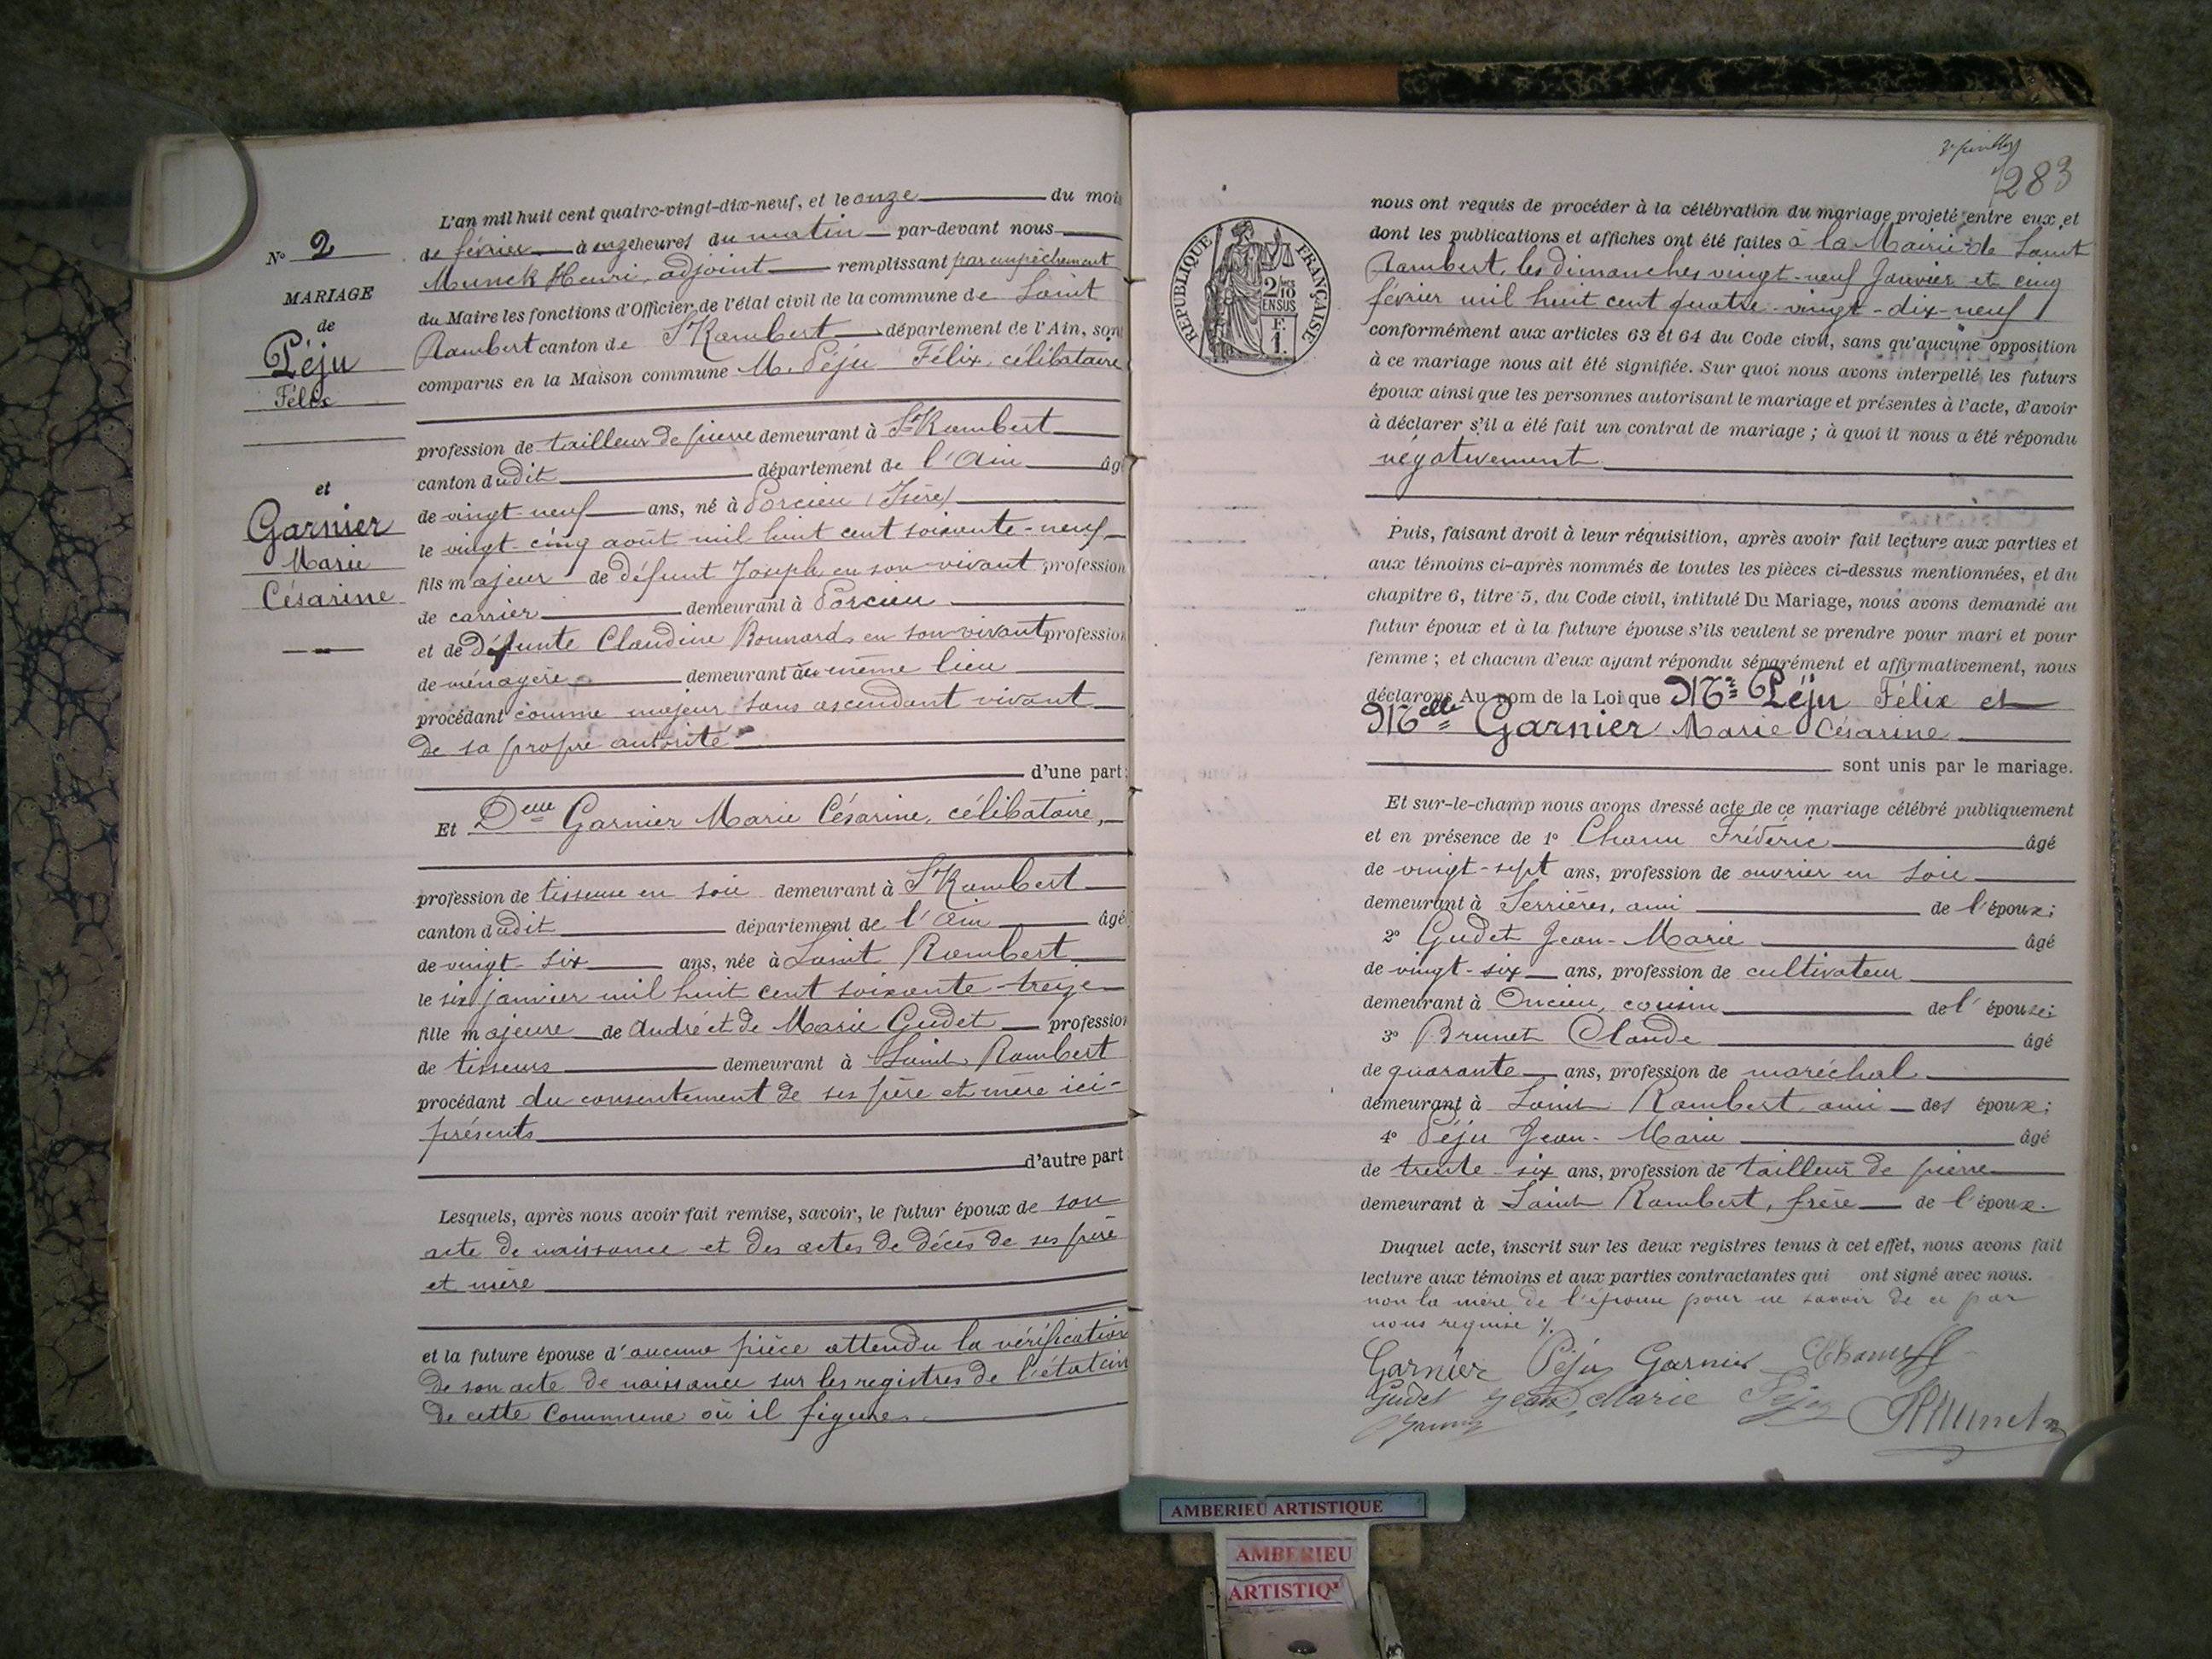 N° 2
MARIAGE
de
Péju
Félix
et
Garnier
Marie
Césarine
L'an mil huit cent quatre-vingt-dix-neuf, et le onze du mois
de février à onze heures du matin par-devant nous
Munck Henri, adjoint remplissant par empêchement
du Maire les fonctions d'Officier de l'état civil de la commune de Saint
Rambert canton de St Rambert département de l'Ain, sont
comparus en la Maison commune M. Péju Félix, célibataire
profession de tailleur de pierre demeurant à St Rambert
canton dudit département de l'Ain âg
de vingt-neuf ans, né à Porcieu (Isère)
le vingt-cinq août mil huit cent soixante-neuf
fils majeur de défunt Joseph en son vivant profession
de carrier demeurant à Porcieu
et de défunte Claudine Bonnard en son vivant profession
de ménagère demeurant au même lieu
procédant comme majeur sans ascendant vivant
de sa propre autorité
d'une part;
Et Delle Garnier Marie Césarine, célibataire,
profession de tisseuse en soie demeurant à St Rambert
canton dudit département de l'Ain âgé
de vingt-six ans, née à Saint Rambert
le six janvier mil huit cent soixante-treize
fille majeure de André et de Marie Gudet profession
de tisseurs demeurant à Saint Rambert
procédant du consentement de ses père et mère ici-
présents
d'autre part
Lesquels, après nous avoir fait remise, savoir, le futur époux de son
acte de naissance et des actes de décès de ses père
et mère
et la future épouse d'aucune pièce attendu la vérification
de son acte de naissance sur les registres de l'état civil
de cette Commune où il figure.
283
RÉPUBLIQUE FRANÇAISE
2/10
EN SUS
F.
1.
nous ont requis de procéder à la célébration du mariage projeté entre eux et
dont les publications et affiches ont été faites à la Mairie de Saint
Rambert, les dimanches vingt-neuf Janvier et cinq
février mil huit cent quatre-vingt-dix-neuf
conformément aux articles 63 et 64 du Code civil, sans qu'aucune opposition
à ce mariage nous ait été signifiée. Sur quoi nous avons interpellé les futurs
époux ainsi que les personnes autorisant le mariage et présentes à l'acte, d'avoir
à déclarer s'il a été fait un contrat de mariage ; à quoi il nous a été répondu
négativement
Puis, faisant droit à leur réquisition, après avoir fait lecture aux parties et
aux témoins ci-après nommés de toutes les pièces ci-dessus mentionnées, et du
chapitre 6, titre 5, du Code civil, intitulé Du Mariage, nous avons demandé au
futur époux et à la future épouse s'ils veulent se prendre pour mari et pour
femme ; et chacun d'eux ayant répondu séparément et affirmativement, nous
déclarons Au nom de la Loi que Mr Péju Félix et
Melle Garnier Marie Césarine
sont unis par le mariage.
Et sur-le-champ nous avons dressé acte de ce mariage célébré publiquement
et en présence de 1° Chanu Fréderic âgé
de vingt-sept ans, profession de ouvrier en soie
demeurant à Serrières, ami de l'époux;
2° Gudet Jean-Marie âgé
de vingt-six ans, profession de cultivateur
demeurant à Oncieu, cousin de l'épouse;
3° Brunet Claude âgé
de quarante ans, profession de maréchal
demeurant à Saint Rambert ami des époux;
4° Péju Jean-Marie âgé
de trente-six ans, profession de tailleur de pierre
demeurant à Saint Rambert, frère de l'époux.
Duquel acte, inscrit sur les deux registres tenus à cet effet, nous avons fait
lecture aux témoins et aux parties contractantes qui ont signé avec nous.
non la mère de l'épouse pour ne savoir de ce par
nous requise ./.
Garnier Péju Garnier
Gudet Jean Marie Péju
AMBERIEU ARTISTIQUE
AMBERIEU
ARTISTIQ